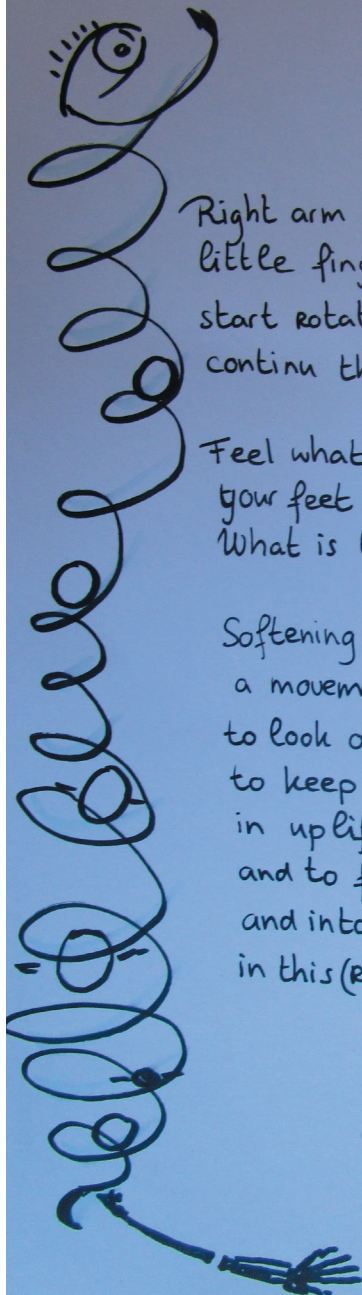 Right arm
little fing
start rotat
continu th
Feel what
your feet
What is
Softening
a movem
to look o
to keep
in uplif
and to f
and into
in this (R